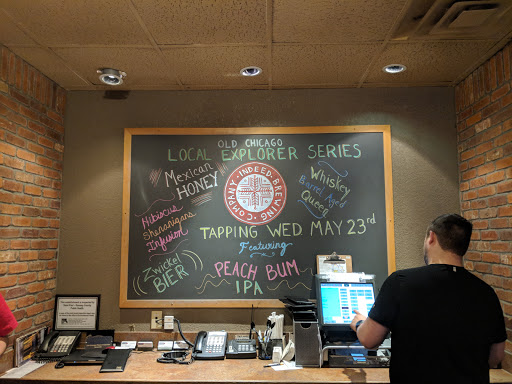 OLD CHICAGO
LOCAL EXPLORER SERIES
Mexican
HONEY
INDEED · BREWING · COMPANY ·
Whiskey
Barrel Aged
Queen
Hibiscus
Shenanigans
Infusion
TAPPING WED MAY 23rd
Featuring
Zwickel
BIER
PEACH BUM
IPA